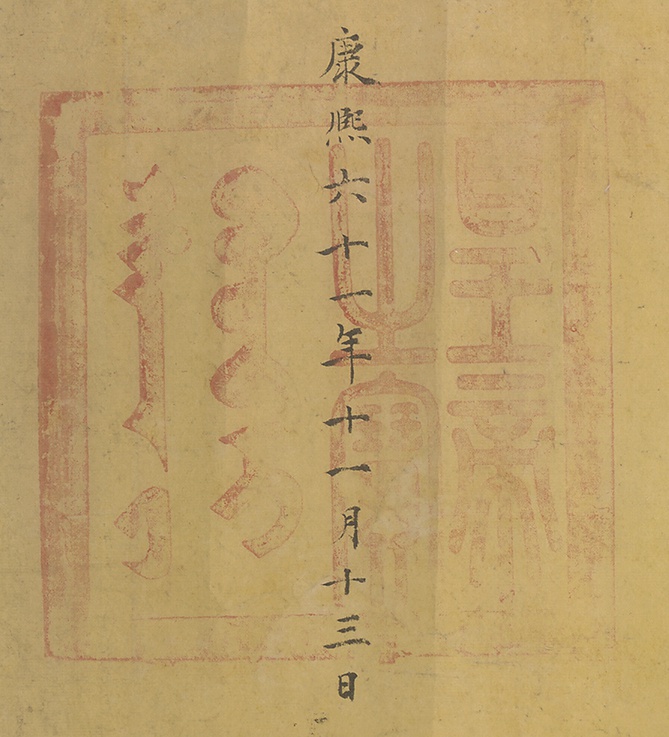 康熙六十一年十一月十三日
皇帝
之寶